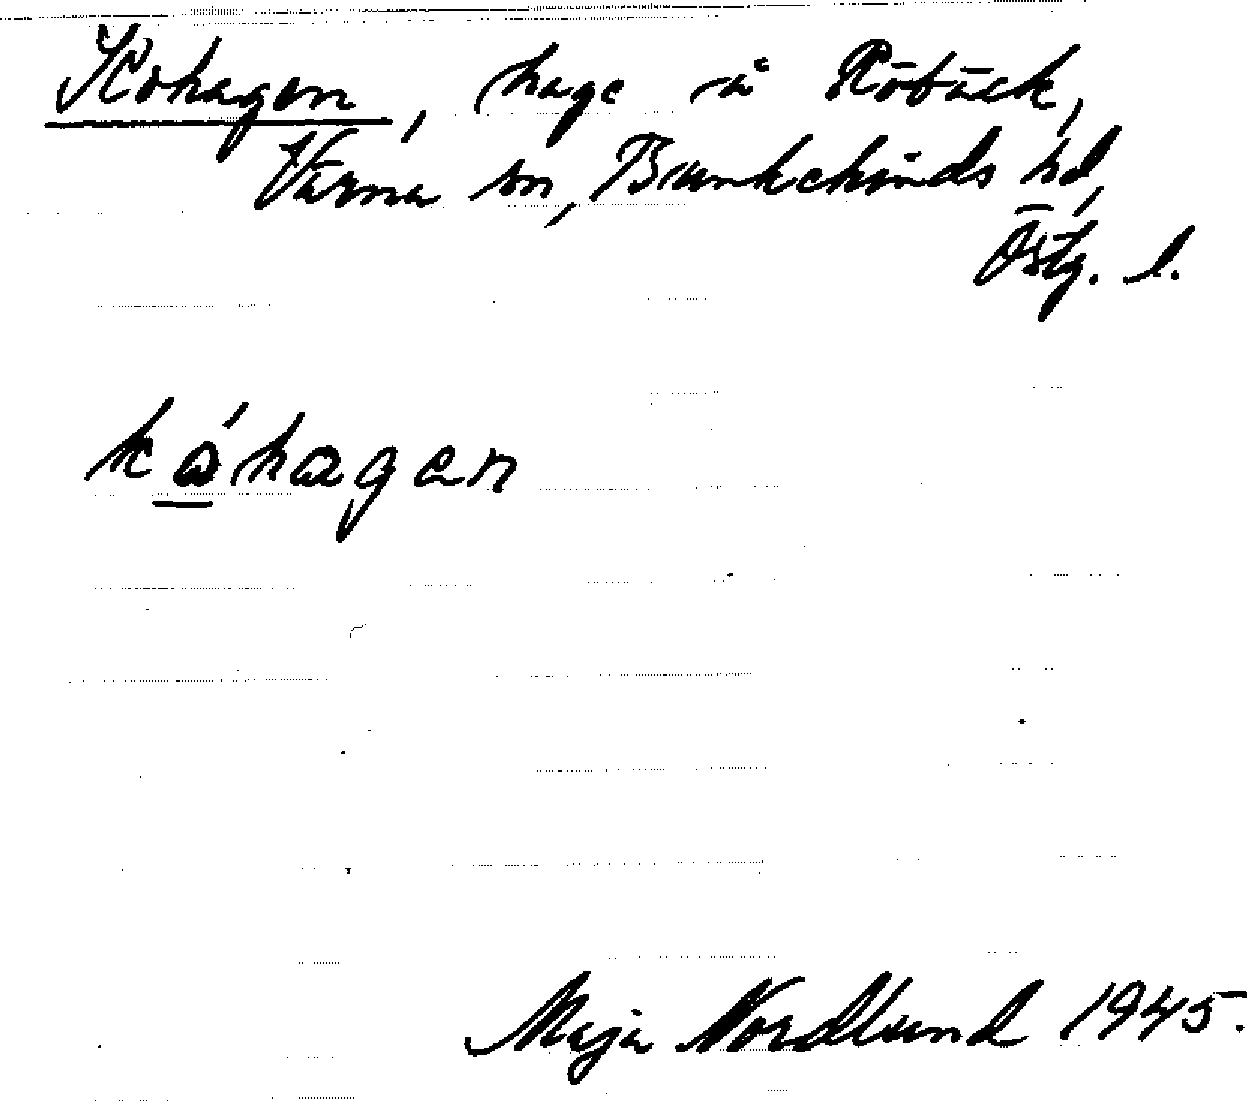 Kohagen, hage å Röbäck,
Värna sn, Bankekinds hd,
Östg. l.
kó̲hagen
Maja Nordlund 1945.